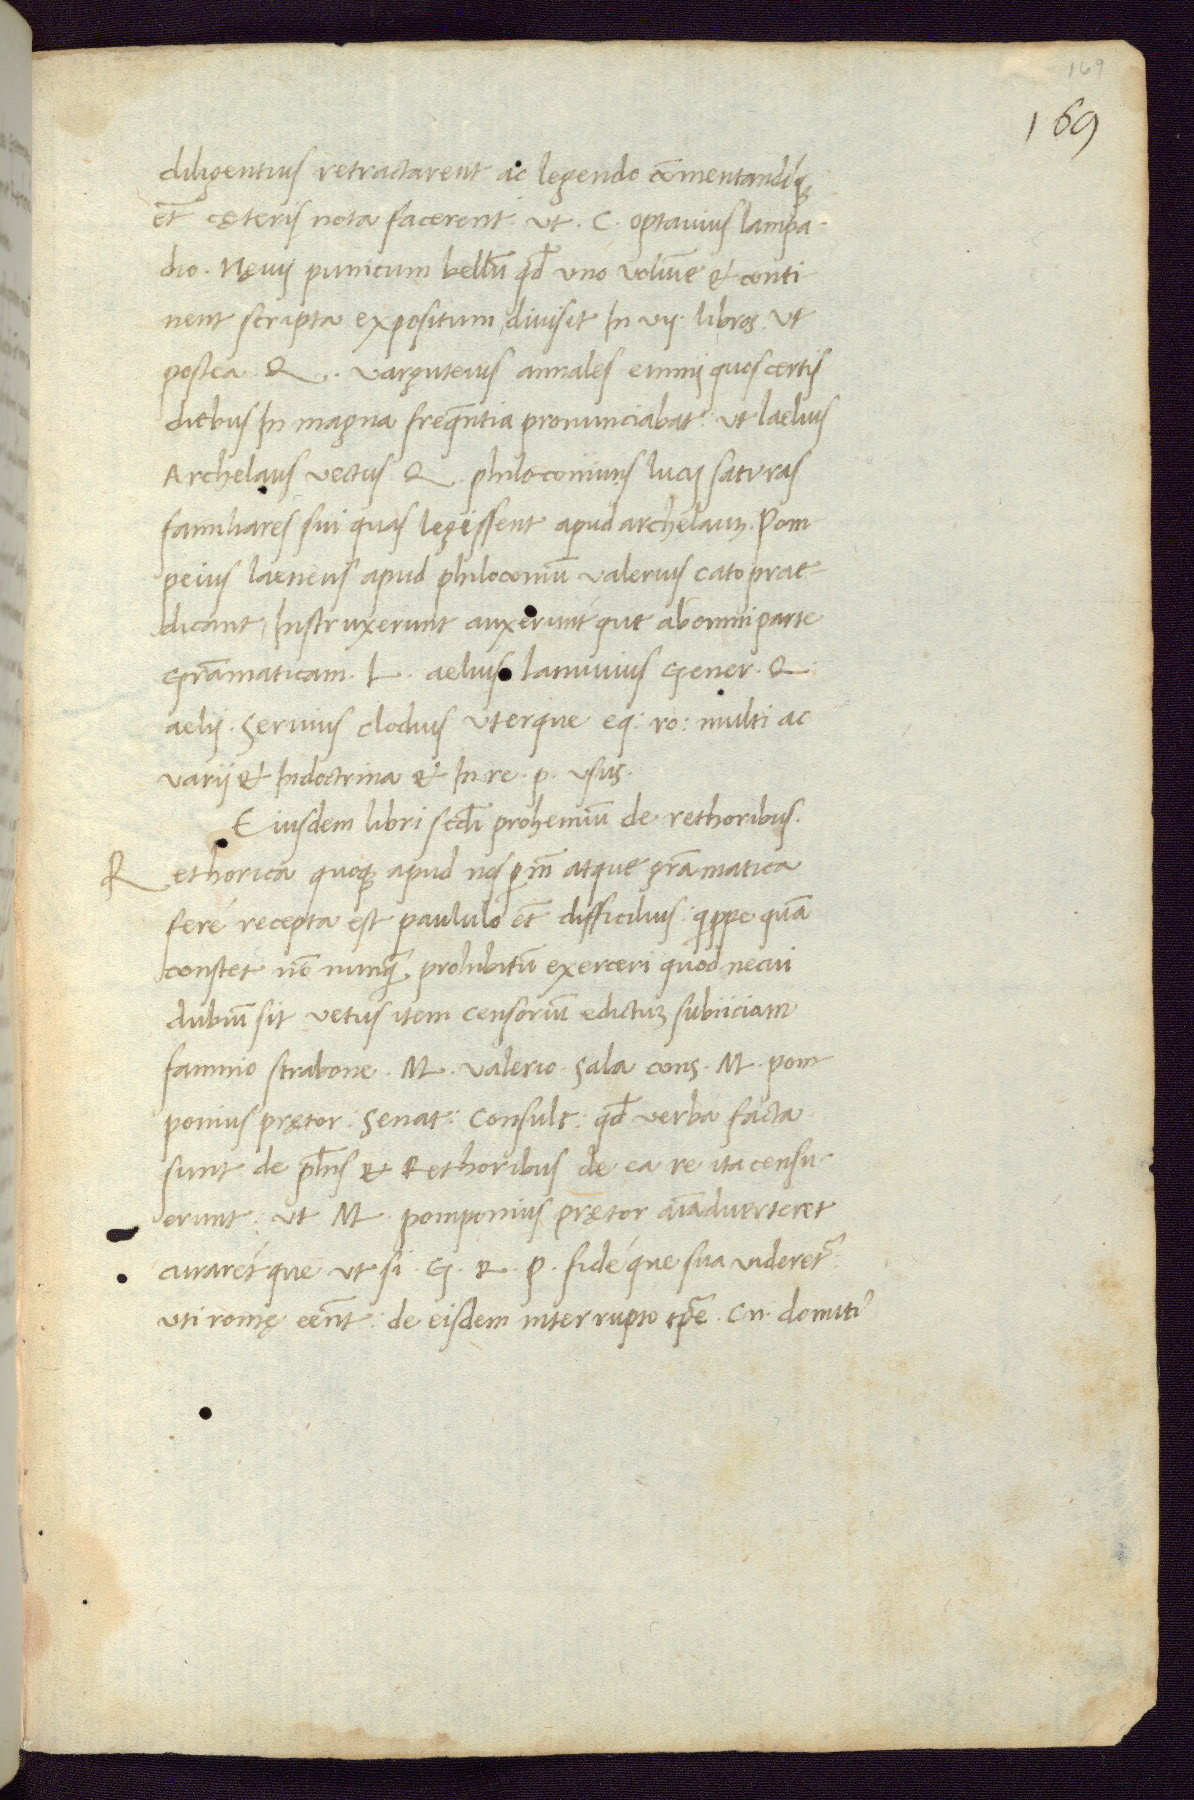 169
169
diligentius retractarent ac legendo cōmentandíq₃
et̄ cęteris nota facerent. ut. C. optauius lampa-
dio. Nęuij punicum bellū qd̄ uno volūīe & conti
nent scripta expositum, diuisit In vij. libros. ut
postea Q. varguteius annales ennij quos certis
diebus In magna freq̄ntia pronunciabat: ut laelius
Archelaus vectus Q philocomiuus lucij saturas
familiares sui quas legissent apud archelauȝ. Pom
peius laeneus apud philocomiū valerius cato prae-
dicant, Instruxerunt auxeruntque ab omni parte
Grāmaticam. L. aelius lanuuius Gener. Q
aelij. Seruius clodius uterque eq: ro: multi ac
varij & In doctrina & In re. p. usus.
Eiusdem libri scd̄i prohemiū de rethoribus.
Rethorica quoq₃ apud nos pīn̄ atque grāmatica
feré recepta est paululo et̄ difficilius: qppe quā
constet nō nunq̄ prohibitū exerceri quod necui
dubiū sit vetus item censoriū edictuȝ subiiciam
fannio strabone. M. valerio. Sala cons. M. pom
ponius prętor: Senat: Consult: qd̄ verba facta
sunt de pl̄īis & Rethoribus de ea re ita censu-
erunt: ut M. pomponius prętor aīaduerteret
curarétque ut si. G. R. P. fidéque sua uideret̄
uti romę eēnt: de eisdem interrupto tp̄e. Cn. domiti'